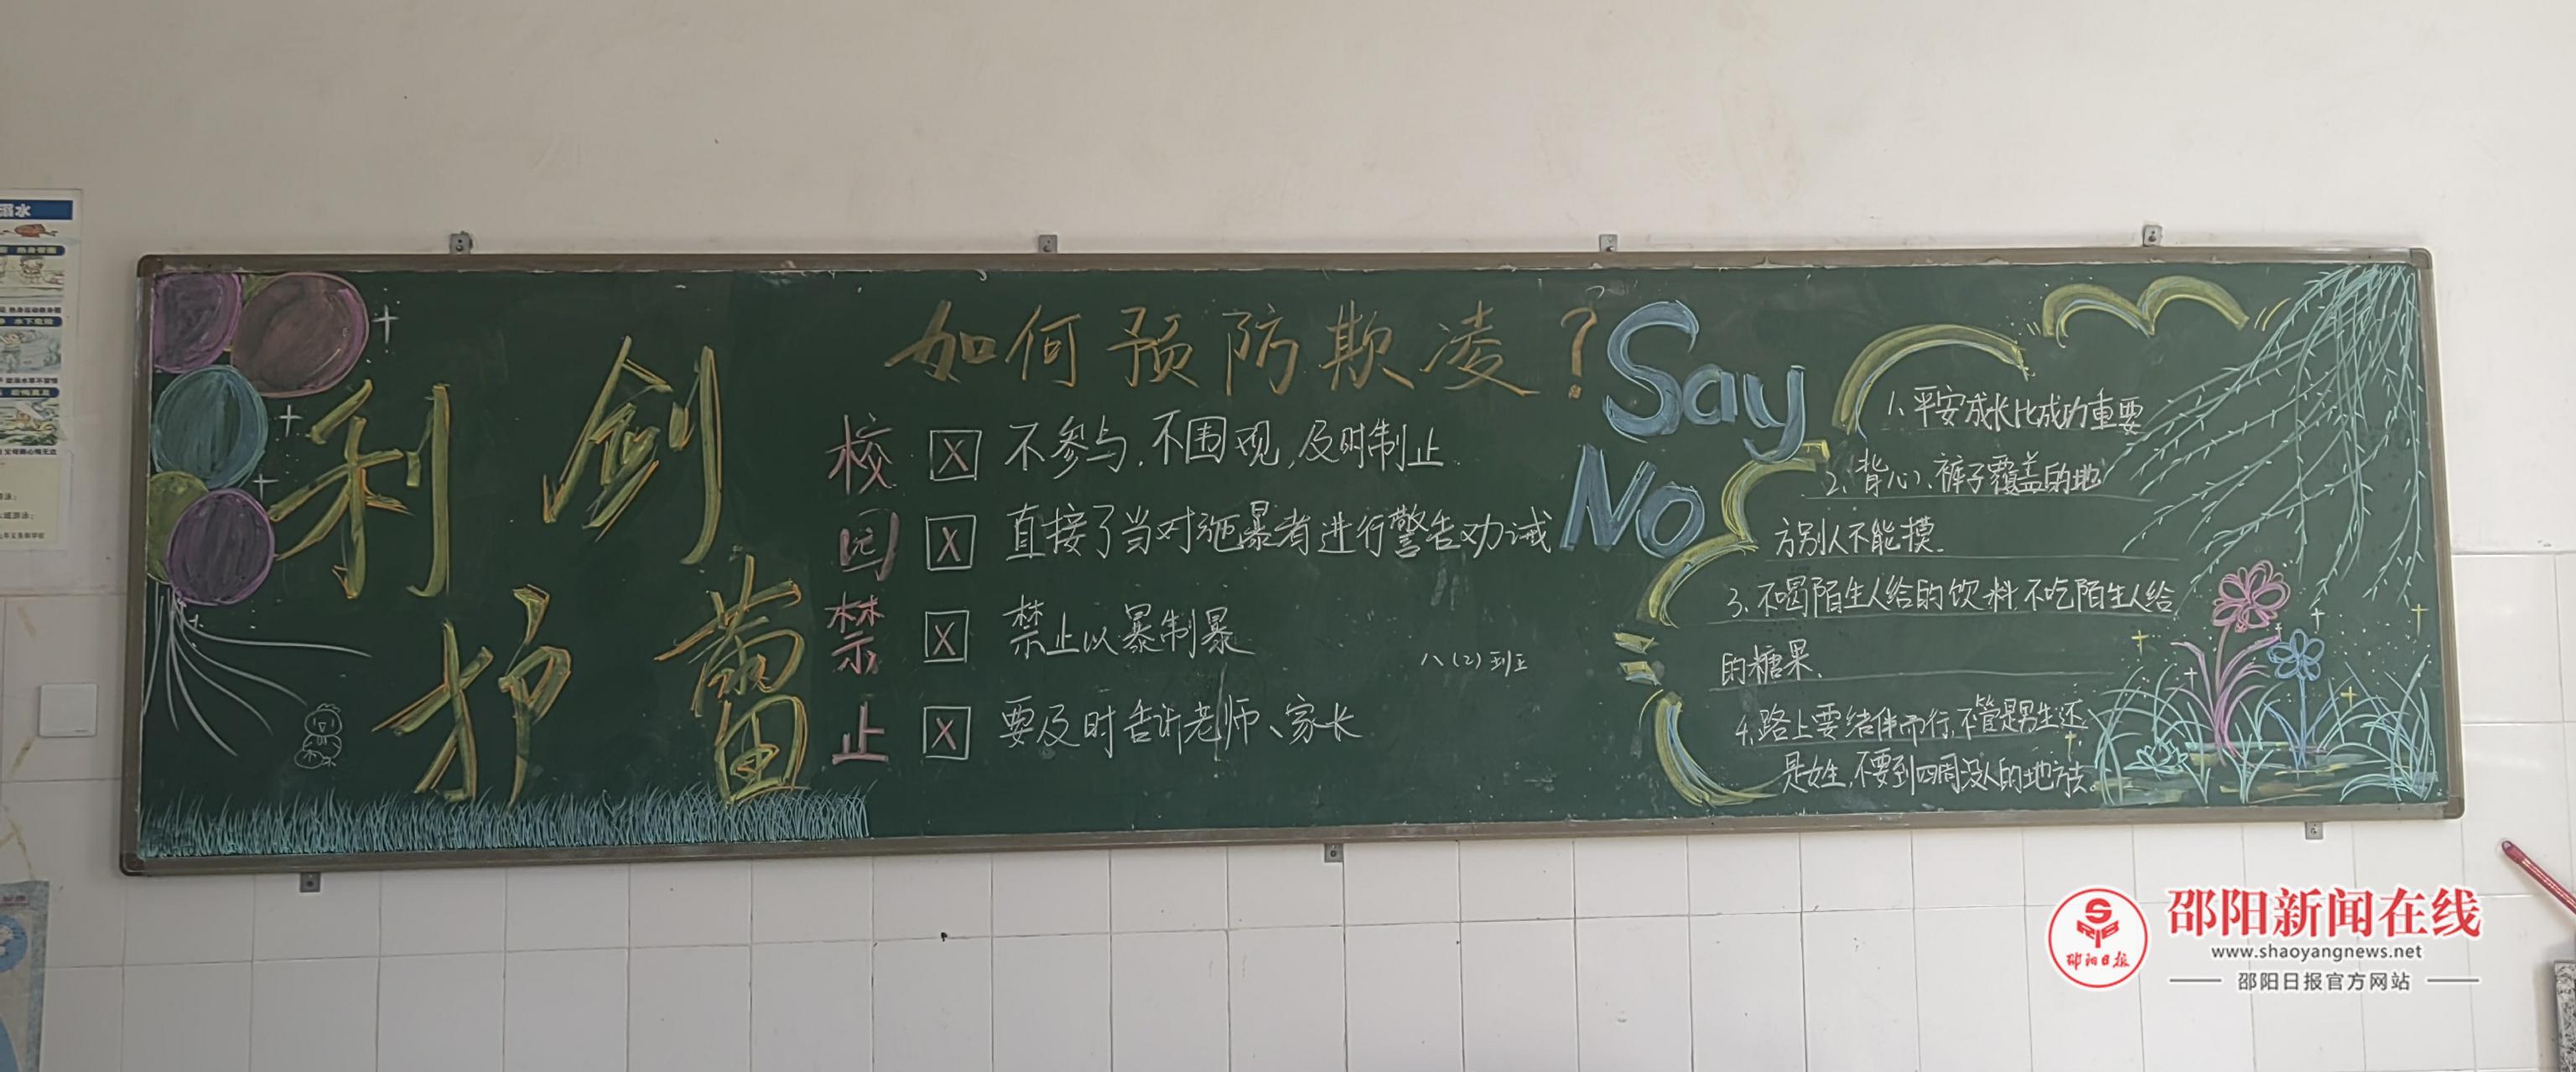 溺水
利剑
护蕾
如何预防欺凌?
校园禁止
☒ 不参与,不围观,及时制止
☒ 直接了当对施暴者进行警告劝诫
☒ 禁止以暴制暴
☒ 要及时告诉老师、家长
八(2)班
Say
No
1、平安成长比成功重要
2、背心、裤子覆盖的地
方别人不能摸.
3、不喝陌生人给的饮料不吃陌生人给
的糖果.
4.路上要结伴而行,不管是男生还
是女生,不要到四周没人的地方去。
邵阳日报
邵阳新闻在线
www.shaoyangnews.net
邵阳日报官方网站